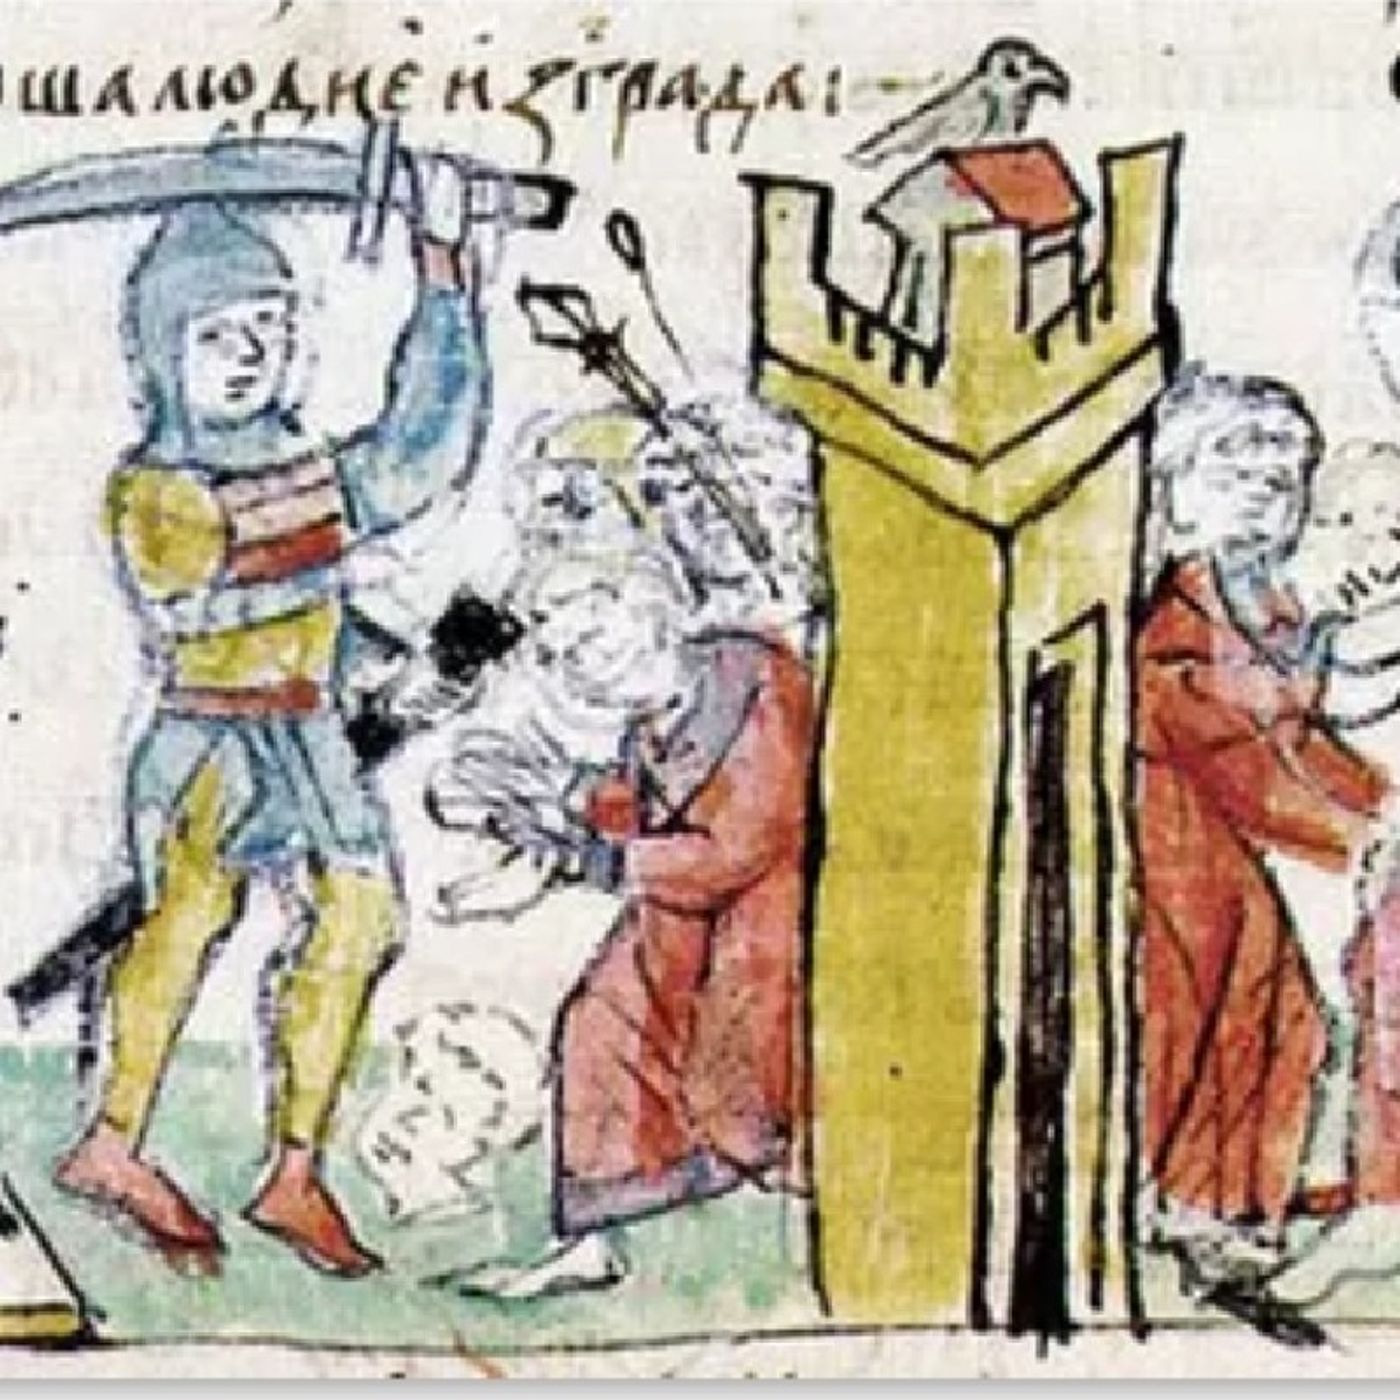 оша людие изграда :